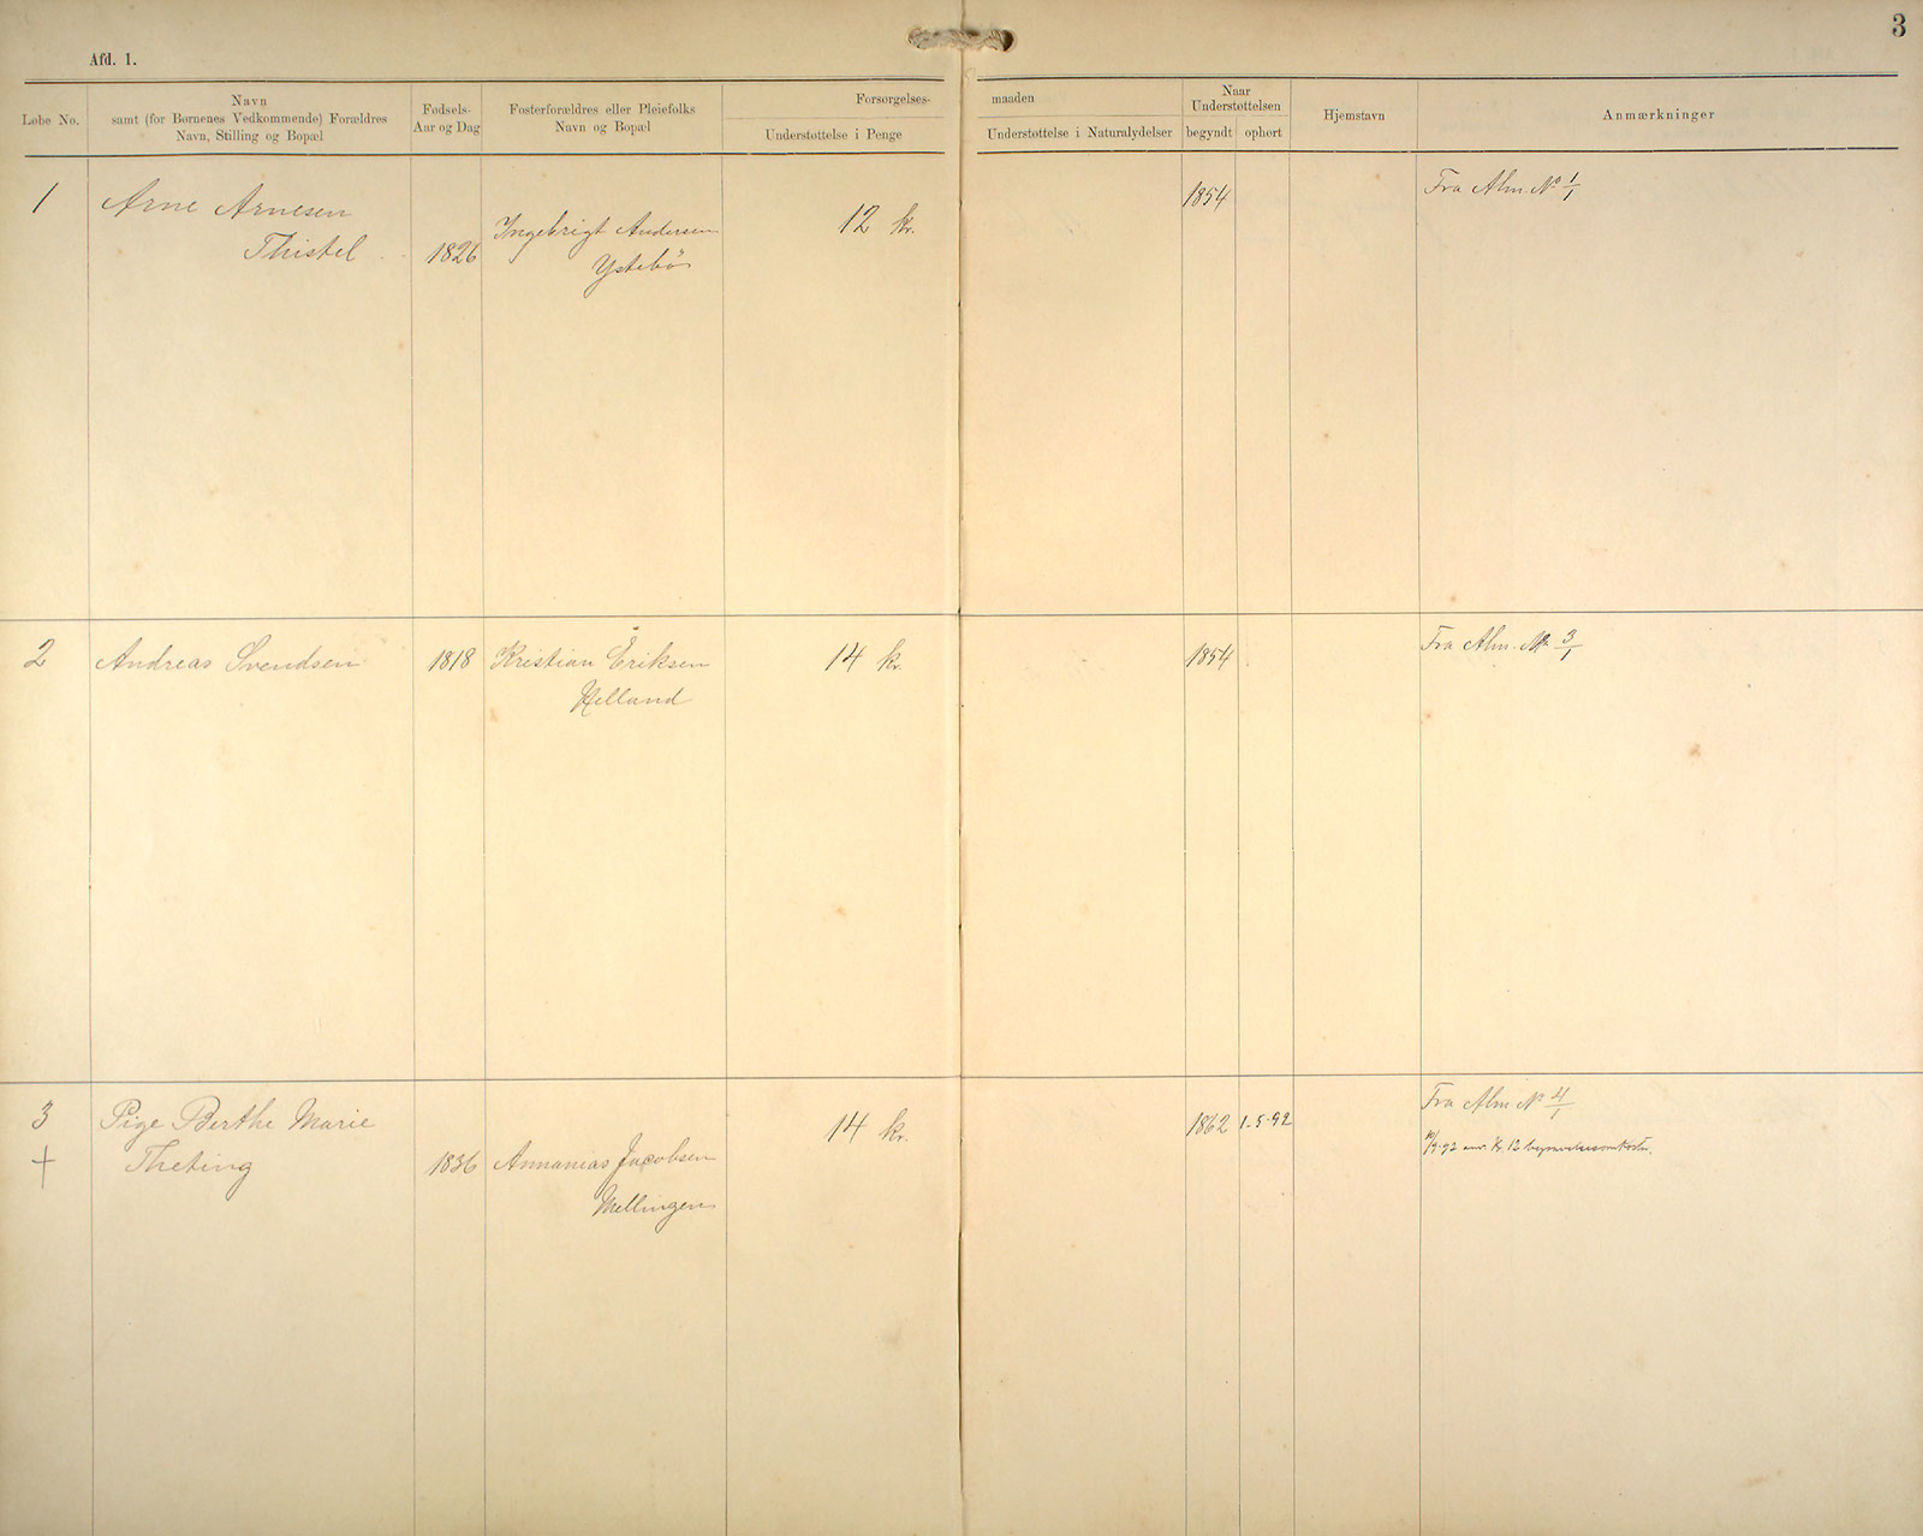 3
Afd. 1.
Løbe No.
Navn
samt (for Børnenes Vedkommende) Forældres
Navn, Stilling og Bopæl
Fødsels-
Aar og Dag
Fosterforældres eller Pleiefolks
Navn og Bopæl
Forsørgelses-
maaden
Understøttelse i Penge
Understøttelse i Naturalydelser
Naar
Understøttelsen
begyndt
ophørt
Hjemstavn
Anmærkninger
1
Arne Arnesen
Thistel
1826
Ingebrigt Andersen
Ystebö
12 kr.
1854
Fra Alm. No 1/1
2
Andreas Svendsen
1818
Kristian Eriksen
Helland
14 kr.
1854
Fra Alm. No 3/1
3
+
Pige Berthe Marie
Theting
1836
Annanias Jacobsen
Mellingen
14 kr.
1862
1-5-92
Fra Alm No 4/1
anv. Kr. 12 begravelsesomkostn.